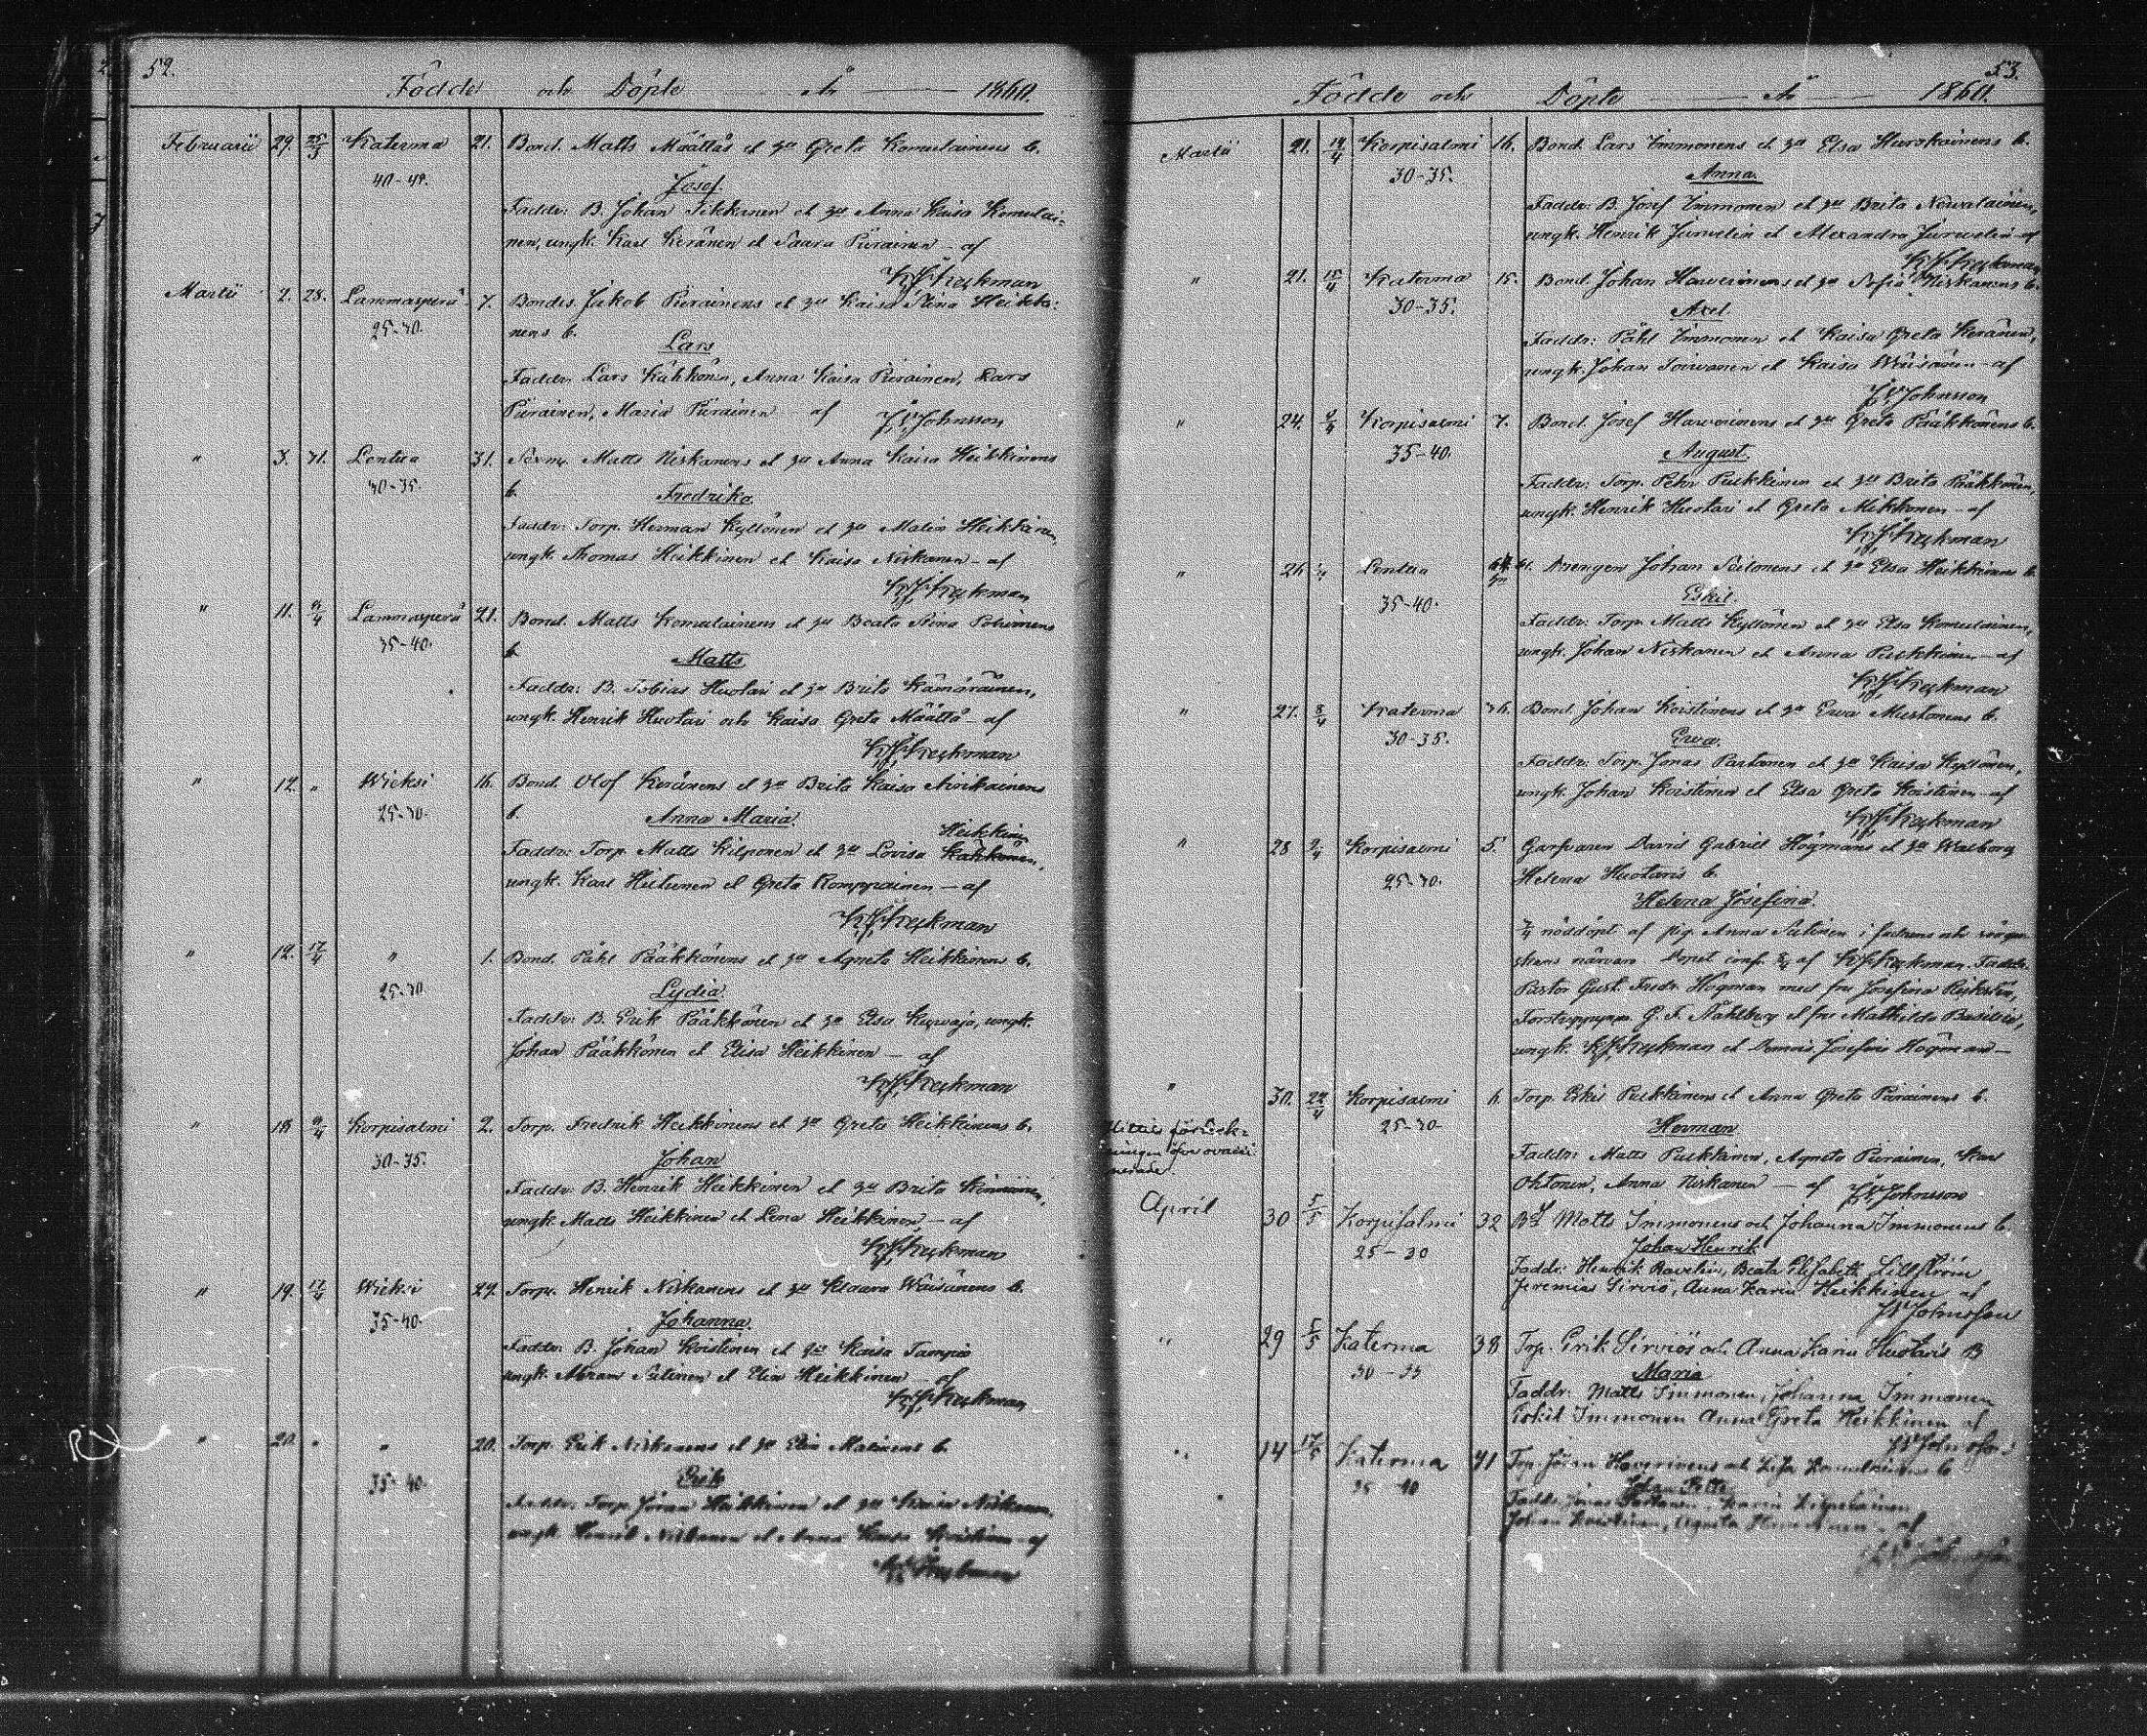 52.
Födde och Döpte År 1860.
Februarii 29. 25/3 Katerma 21. Bond. Matts Määttäs et hu Greta Komulainens b.
40-45.
Josef.
Faddr: B. Johan Tikkanen et hu Anna Kaisa Komulai-
nen, ungk. Karl Keränen et Saara Piirainen - af
K.J. Keckman
Martii 2. 28. Lammasperä 7. Bondes. Jakob Piirainens et hu Kaisa Stina Heikki-
25-30. nens b.
Lars
Faddr. Lars Kähkönen, Anna Kaisa Piirainen, Lars
Piirainen, Maria Piirainen af J.V. Johnsson
" 3. 31. Lentua 31. Matts Niskanens et hu Anna Kaisa Heikkinens
30-35. b.
Fredrika.
Faddr: Torp. Herman Kyllönen et hu Malin Heikkinen,
ungk. Thomas Heikkinen et Kaisa Niskanen - af
K.J. Keckman
" 11. Lammasperä 21. Bond. Matts Komulainens et hu Beata Stina
35-40. b.
Matts
Faddr: B. Tobias Huotari et hu Brita Kämäräinen,
ungk. Henrik Huotari och Kaisa Greta Määttä - af
K.J. Keckman
" 12. " Wieksi 16. Bond. Olof Keränens et hu Brita Kaisa
25-30. b.
Anna Maria.
Heikkinen
Faddr: Torp. Matts Kilponen et hu Lovisa Kähkönen,
ungk. Karl Heikkinen et Greta Romppainen - af
K.J. Keckman
" 12. 17/4 " 1. Bond. Påhl Pääkkönens et hu Agneta Heikkinens b.
25-30
Lydia
Faddr: B. Erik Pääkkönen et hu Elsa Kurvaja, ungk.
Johan Pääkkönen et Elisa Heikkinen - af
K.J. Keckman
" 18 9/4 Korpisalmi 2. Torp. Fredrik Heikkinens et hu Greta Heikkinens b.
30-35.
Johan
Faddr: B. Henrik Heikkinen et hu Brita
ungk. Matts Heikkinen et Lena Heikkinen - af
K.J. Keckman
" 19. 17/4 Wieksi 29. Torp. Henrik Niskanens et hu Klaara Wäisänens b.
35-40.
Johanna.
Faddr. B. Johan Koistinen et hu Kaisa Tampio
ungk. Abram et Elin Heikkinen - af
K.J. Keckman
" 20. " " 20. Torp. Erik Niskanens et hu Elin Malinens b.
35-40.
Erik
Faddr: Torp. Jöran Heikkinen et hu Karin Niskanen,
ungk. Henrik Niskanen et Anna Kaisa af
K.J. Keckman
53.
Födde och Döpte År 1860.
Martii 21. 14/4 Korpisalmi 16. Bond. Lars Immonens et hu Elsa Hurskainens b.
30-35.
Anna.
Faddr: B. Josef Immonen et hu Brita Nowalainen,
ungk. Henrik Jurvelin et Alexandra Jurvelin af
K.J. Keckman
" 21. 15/4 Katerma 15. Bond. Johan Hawerinens et hu Sofia Niskanens b.
30-35.
Axel
Faddr: Påhl Immonen et Kaisa Greta Keränen,
ungk. Johan Toivanen et Kaisa Wäisänen - af
J.V. Johnsson
" 24. 9/4 Korpisalmi 7. Bond. Josef Hawerinens et hu Greta Pääkkönens b.
35-40.
August.
Faddr: Torp. Pehr Pulkkinen et hu Brita Pääkkönen,
ungk. Henrik Huotari et Greta Mikkonen - af
K.J. Keckman
" 26 Lentua Drengen Johan Piitonens et hu Elsa Heikkinens b.
35-40.
Eskil.
Faddr: Torp. Matts Kyllönen et hu Elsa Komulainen,
ungk. Johan Niskanen et Anna Pulkkinen - af
K.J. Keckman
" 27. 8/4 Katerma 36. Bond. Johan Koistinens et hu Ewa Mustonens b.
30-35.
Ewa.
Faddr: Torp. Jonas Partanen et hu Kaisa Kyllönen,
ungk. Johan Koistinen et Elsa Greta Koistinen - af
K.J. Keckman
" 28 9/4 Korpisalmi 5. Garfvaren David Gabriel Högmans et hu Walborg
25-30. Helena Huotaris b.
Helena Josefina.
nöddöpt af pig. Anna i fadrens och
närvaro. Dopet conf. af K.J. Keckman. Faddr:
Pastor Gust. Fredr. Högman med fru Josefina
G. F. Ståhlberg et fru Mathilda Basilia,
ungk. K.J. Keckman et Josefina Högman -
" 30. 22/4 Korpisalmi 6. Torp. Eskil Pulkkinens et Anna Greta Piirainens b.
25-30
Herman
Faddr: Matts Pulkkinen, Agneta Piirainen, Karl
Ohtonen, Anna Niskanen - af J.V. Johnsson
Hittils förteck-
ningen öfver ovacci-
nerade.
April 30 5/5 Korpisalmi 32 Bd Matts Immonens och Johanna Immonens b.
25-30
Johan Henrik
Faddr: Henrik Ravelin, Beata Elisabeth Lillström
Jeremias Sirviö, Anna Karin Heikkinen af
J.V. Johnsson
" 29 5/5 Katerma 38 Trp. Erik Sirviös och Anna Karin Huotaris B
30-35
Maria
Faddr: Matts Immonen, Johanna Immonen
Eskil Immonen Anna Greta Heikkinen af
J.V. Johnsson
" 14 17/5 Katerma 41 Trp. Johan Haverinens och Lisa Komulainens b
35 40
Johan Petter
Faddr. Jonas Partanen, Karin
Johan Koistinen, Agneta Haverinen - af
J.V. Johnsson